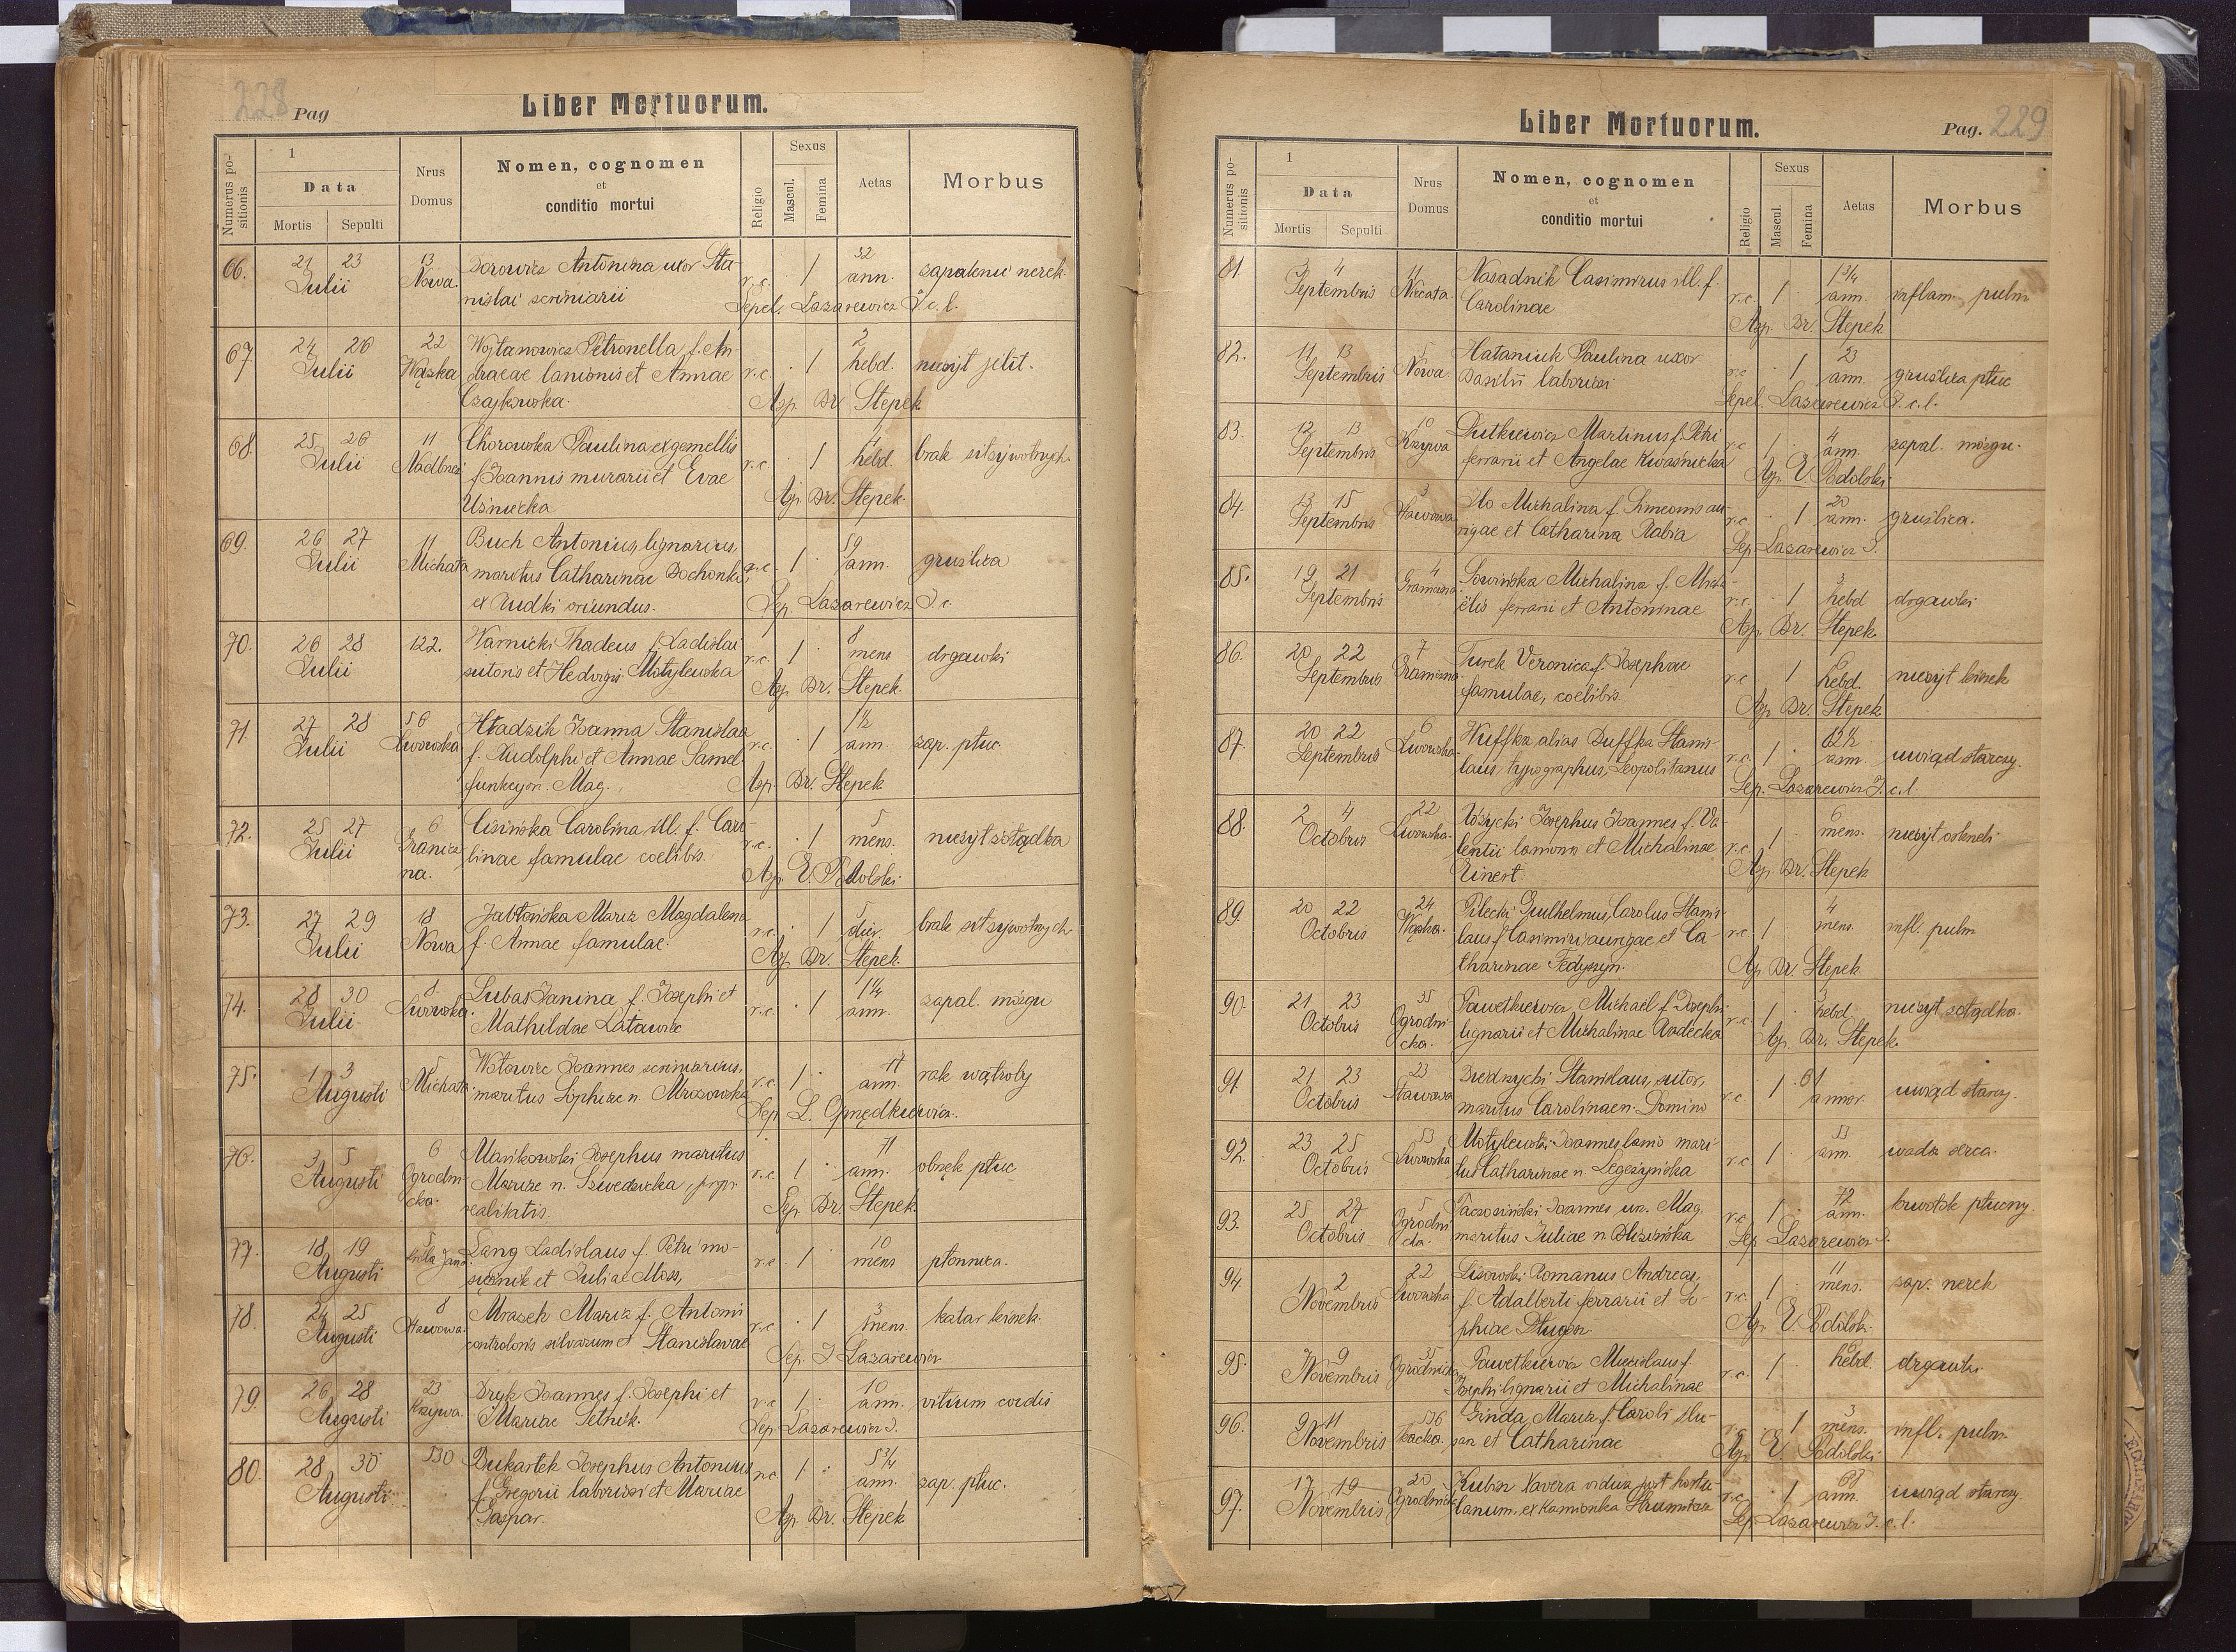 228 Pag
Liber Mortuorum.
Numerus positionis
1
Data
Mortis Sepulti
Nrus Domus
Nomen, cognomen
et
conditio mortui
Religio
Sexus
Mascul. Femina
Aetas
Morbus
66. 21 23 Julii 13 Nowa. Antonina uxor Sta-
nislai scriniarii r.c. 1 32 ann. zapalenie nerek.
Sepel. Lazarewicz J. c. l.
67. 24 26 Julii 22 Wązka Wojtanowicz Petronella f. An-
dreae lanionis et Annae r.c. 1 2 hebd. nieżyt jelit.
Czajkowska. Asp. Dr Stepek
68. 25 26 Julii 11 Chorowska Paulina ex gemellis
f. Joannis murarii et Evae r.c. 1 hebd. brak sił żywotnych.
Uśnicka Asp. Dr. Stepek.
69. 26 27 Julii 11 Michała Buch Antonius, lignarius,
maritus Catharinae r.c. 1 59 ann. gruźlica
ex Rudki oriundus. Sep. Lazarewicz J. c.
70. 26 28 Julii 122. Warnicki Thadeus f. Ladislai
sutoris et Hedvigis Motylewska r.c. 1 8 mens drgawki
Asp. Dr. Stepek.
71. 27 28 Julii 56 Lwowska Hładzik Joanna Stanislaa
f. Rudolphi et Annae Samel r.c. 1 1½ ann. zap. płuc
funkcyon. Mag. Asp. Dr. Stepek
72. 25 27 Julii 6 Granicz-
na. Cisińska Carolina ill. f. Caro-
linae famulae coelibis. r.c. 1 5 mens. nieżyt żołądka
Asp. E. Podolski
73. 27 29 Julii 18 Nowa Jabłońska Maria Magdalena
f. Annae famulae. r.c. 1 5 dier. brak sił żywotnych
Asp. Dr. Stepek.
74. 28 30 Julii 8. Lwowska. Lubas Janina f. Josephi et
Mathildae Latawiec r.c. 1 1¼ ann. zapal. mózgu
75. 1 3 Augusti 5 Michała. Wołowiec Joannes scriniarius,
maritus Sophiae n. Mrozowska r.c. 1 47 ann. rak wątroby
Sep. L. Gmędkiewicz.
76. 3 5 Augusti 6 Ogrodni-
cka. Mańkowski Josephus maritus
Mariae n. Szwedzicka, propr. r.c. 1 71 ann. obrzęk płuc
realitatis. Sep. Dr Stepek.
77. 18 19 Augusti 5 Lang Ladislaus f. Petri mo-
siężnik et Juliae Moss, r.c. 1 10 mens płonnica.
78. 24 25 Augusti 8 Stawowa. Mrazek Maria f. Antoni
controloris silvarum et Stanislavae r.c. 1 3 mens. katar kiszek.
Sep. J. Lazarewicz
79. 26 28 Augusti 23 Krzywa. Dryk Joannes f. Josephi et
Mariae Setnik. r.c 1 10 ann. vitium cordis
Sep. Lazarewicz J.
80. 28 30 Augusti. 530 Dukartek Josephus Antonius
f. Gregorii laboriosi et Mariae r.c. 1 5¾ ann. zap. płuc.
Gaspar. Asp. Dr. Stepek
Liber Mortuorum.
Pag. 229
Numerus positionis
1
Data
Mortis Sepulti
Nrus Domus
Nomen, cognomen
et
conditio mortui
Religio
Sexus
Mascul. Femina
Aetas
Morbus
81 3 4 Septembris 11 Nasadnik Casimirus ill. f.
Carolinae r.c. 1 1¾ ann. inflam. pulm
Asp. Dr. Stepek
82. 11 13 Septembris 5 Nowa. Hataniuk Paulina uxor
Basilii laboriosi r.c 1 23 ann. gruźlica płuc
Sepel. Lazarewicz J. c. l.
83. 12 13 Septembris 10 Krzywa Dutkiewicz Martinus f. Petri
ferrarii et Angelae Kwaśnicka r.c 1 4 ann. zapal. mózgu.
Asp. E. Podolski
84. 13 15 Septembris 3 Stawowa Michalina f. Simeonis au-
rigae et Catharina Rabia r.c. 1 20 ann. gruźlica.
Sep. Lazarewicz J.
85. 19 21 Septembris 4 Graniczna Sowińska Michalina f. Micha-
ëlis ferrarii et Antoninae r.c. 1 3 hebd drgawki
Asp. Dr. Stepek.
86. 20 22 Septembris 7 Graniczna. Turek Veronica f. Josephae
famulae, coelibis. r.c 1 6 hebd. nieżyt kiszek
Asp. Dr. Stepek
87. 20 22 Septembris 6 Lwowska- Wuffka alias Duffka Stanis-
laus, typographus, Leopolitanus r.c. 1 82½ ann. uwiąd starczy.
Sep. Lazarewicz J. c. l.
88. 2 4 Octobris 22 Lwowska. Różycki Josephus Joannes f. Va-
lentii lanionis et Michalinae r.c. 1 6 mens. nieżyt oskrzeli
Rinert. Asp. Dr. Stepek
89. 20 22 Octobris 24 Wązka. Pilecki Guilhelmus Carolus Stanis-
laus f. Casimiri aurigae et Ca- r.c. 1 4 mens. infl. pulm
tharinae Fedyszyn. Asp. Dr. Stepek.
90. 21 23 Octobris 35 Ogrodni-
cka. Pawełkiewicz Michaël f. Josephi
lignarii et Michalinae Rudecka r.c. 1 hebd. nieżyt żołądka.
Asp. Dr. Stepek.
91. 21 23 Octobris 23 Stawowa Biedrzycki Stanislaus, sutor,
maritus Carolinae n. Domino r.c. 1 61 annor. uwiąd starczy.
92. 23 25 Octobris 53 Lwowska Motylewski Joannes lanio mari-
tus Catharinae n. Legeżyńska r.c 1 53 ann. wada serca.
93. 25 27 Octobris 5 Ogrodni
cka. Joannes urz. Mag.
maritus Juliae n. r.c 1 72 ann. krwotok płucny.
Sep. Lazarewicz J.
94 1 2 Novembris 22 Lwowska Lisowski Romanus Andreas,
f. Adalberti ferrarii et So- r.c. 1 11 mens. zap. nerek
phiae Długosz. Asp. E. Podolski.
95. 7 9 Novembris 35 Ogrodnicka Pawełkiewicz Miecislaus f.
Josephi lignarii et Michalinae r.c. 1 hebd. drgawki
96. 9 11 Novembris 536 Ginda Maria f. Caroli slu-
sar et Catharinae r.c. 1 3 mens. infl. pulm.
Asp. E. Podolski
97. 17 19 Novembris 20 Ogrodnicka Kubin Xavera vidua post hortu-
lanum, ex Kamionka Strumiłowa r.c. 1 68 ann. uwiąd starczy
Sep. Lazarewicz J. c. l.